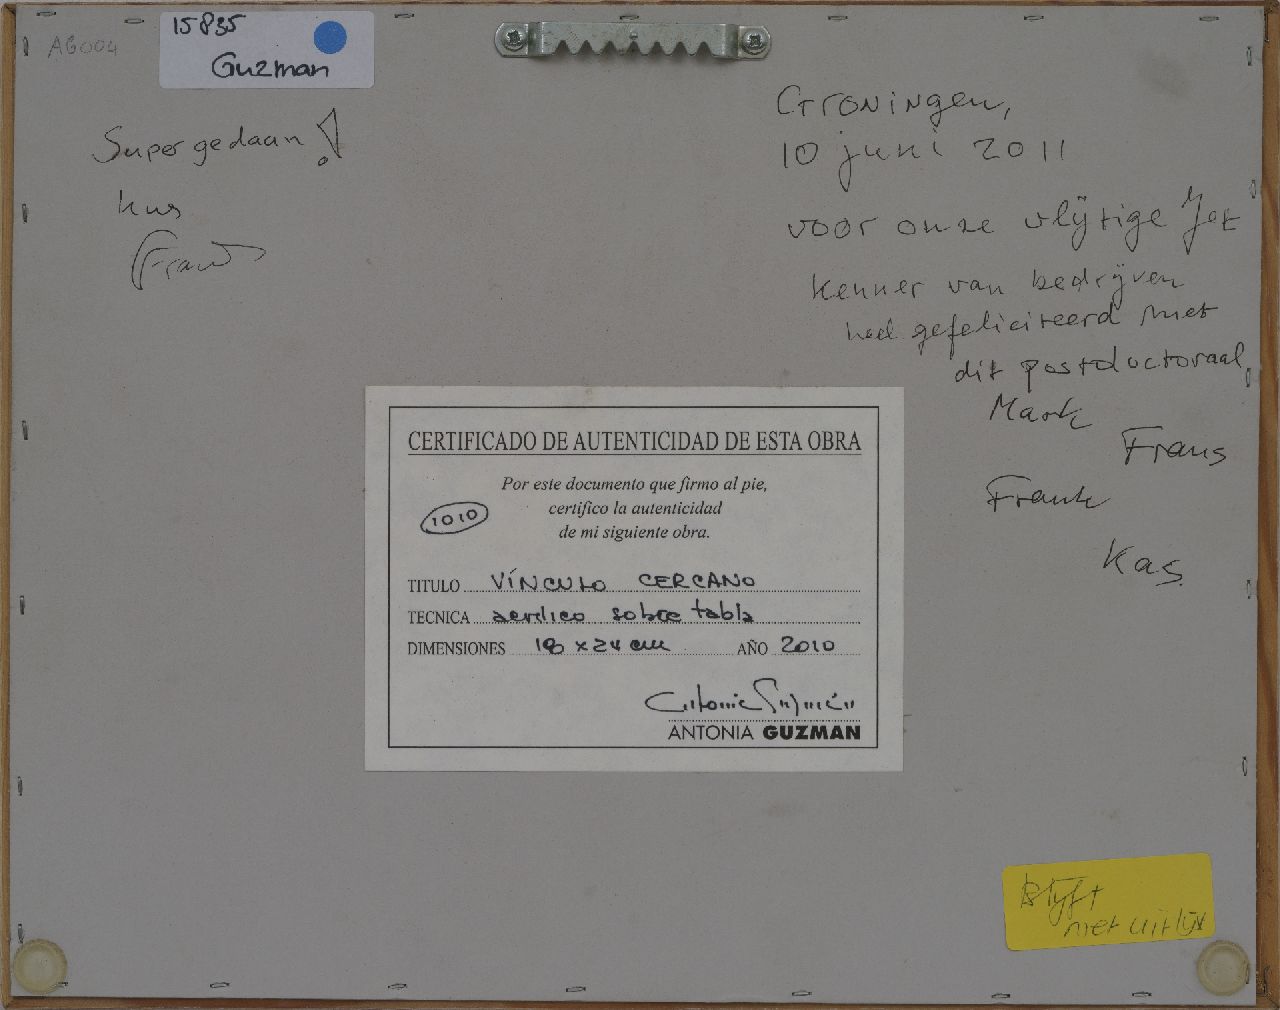 AG004
15835
Guzman
Super gedaan!
kus
Frans
Groningen,
10 juni 2011
voor onze vlijtige Jet
kenner van bedrijven
heel gefeliciteerd met
dit postdoctoraal,
Mark
Frans
Frank
Kas
CERTIFICADO DE AUTENTICIDAD DE ESTA OBRA
Por este documento que firmo al pie,
certifico la autenticidad
de mi siguiente obra.
1010
TITULO VÍNCULO CERCANO
TECNICA acrílico sobre tabla
DIMENSIONES 18 x 24 cm AÑO 2010
Antonia Guzmán
ANTONIA GUZMAN
Blijft
met uitlijv